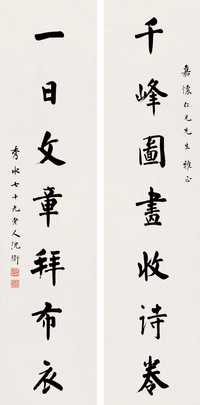 嘉懷仁兄先生雅正
千峰圖畫收詩卷
一日文章拜布衣
秀水七十九叟人沈衛